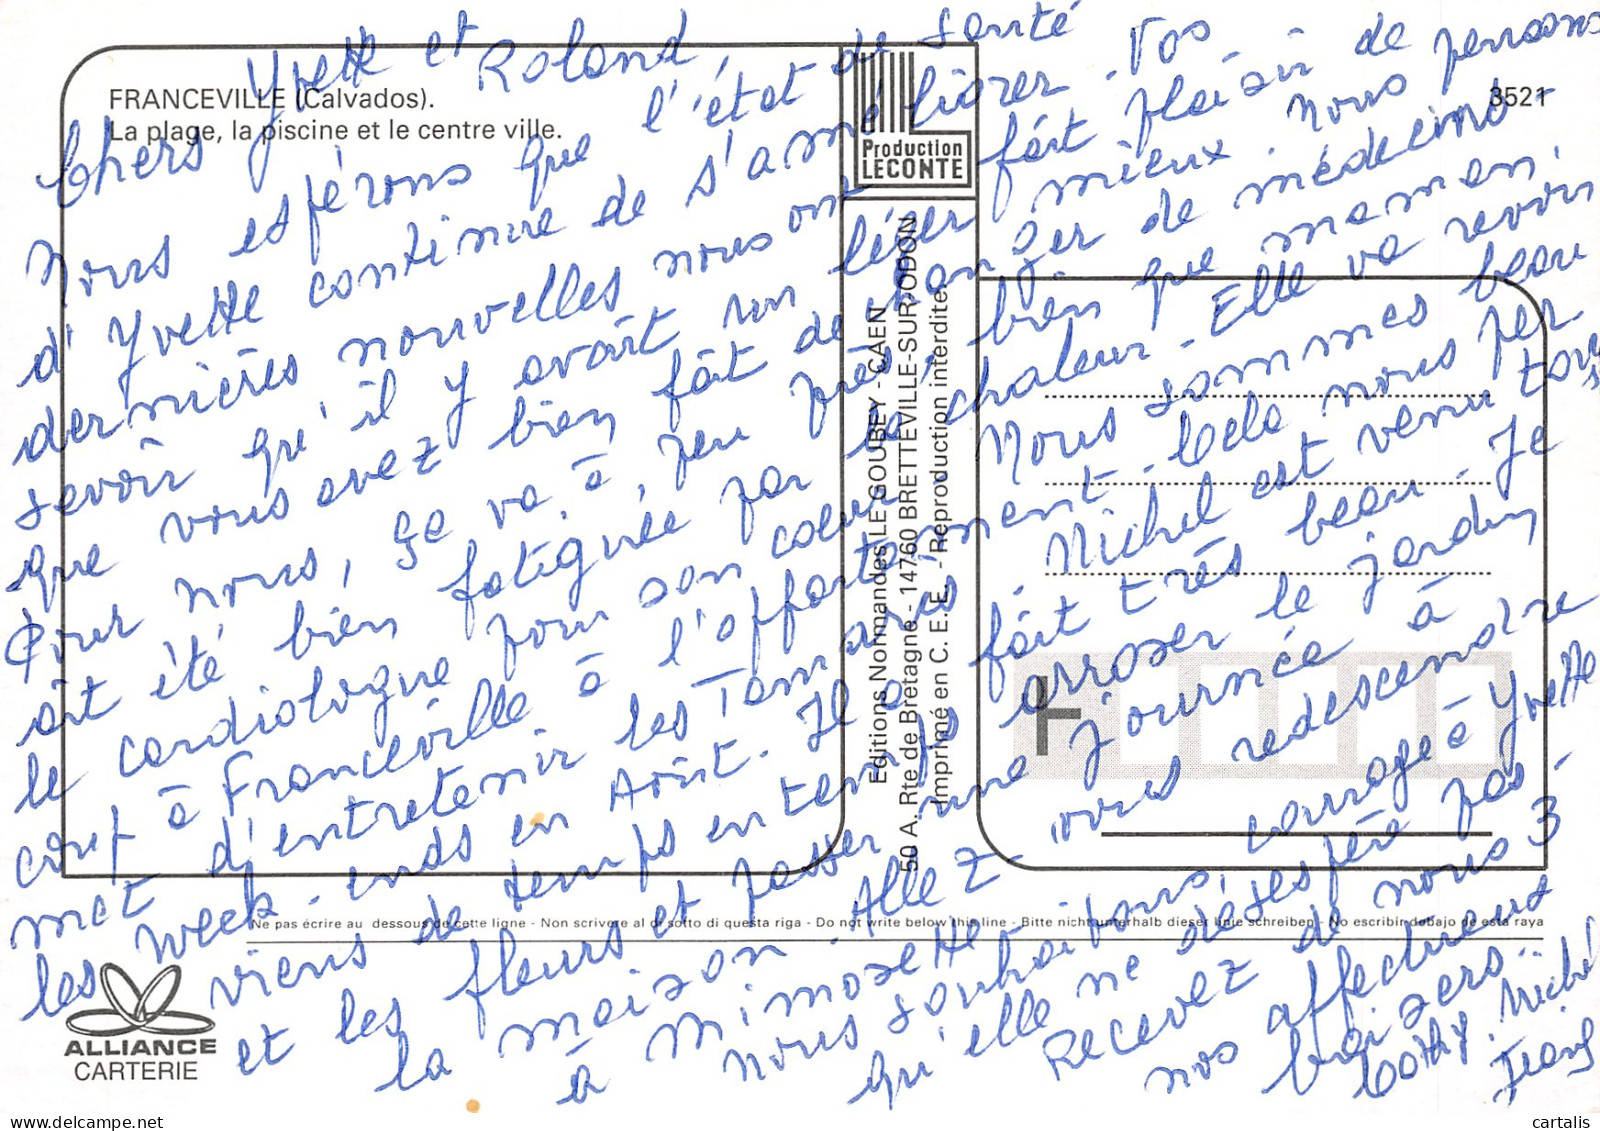 FRANCEVILLE (Calvados).
La plage, la piscine et le centre ville.
3521
Production
LECONTE
Editions Normandes LE GOUBEY - CAEN
50 A, Rte de Bretagne - 14760 BRETTEVILLE-SUR-ODON
Imprimé en C. E. E. - Reproduction interdite
Chers Yvette et Roland,
Nous espérons que l'état de santé
d'Yvette continue de s'améliorer. Vos
dernières nouvelles nous ont fait plaisir de
savoir qu'il y avait un léger mieux. Nous pensons
que vous avez bien fait de changer de médecins.
Pour nous, ça va à peu près, bien que maman
ait été bien fatiguée par la chaleur. Elle va revoir
le cardiologue pour son coeur. Nous sommes beaucoup
à Franceville à l'appartement. Cela nous permet
d'entretenir les Tamaris. Michel est venu tous
les week-ends en Août. Il a fait très beau. Je
viens de temps en temps arroser le jardin
et les fleurs et passer une journée à
la maison. Allez-vous redescendre
à Mimosette
nous souhaitons courage à Yvette
qu'elle ne désespère pas.
Recevez de nous 3
nos affectueux
baisers..
Cathy. Michel
Ne pas écrire au dessous de cette ligne - Non scrivere al di sotto di questa riga - Do not write below this line - Bitte nicht unterhalb dieser linie schreiben - No escribir debajo de esta raya
ALLIANCE
CARTERIE
cartalis.com